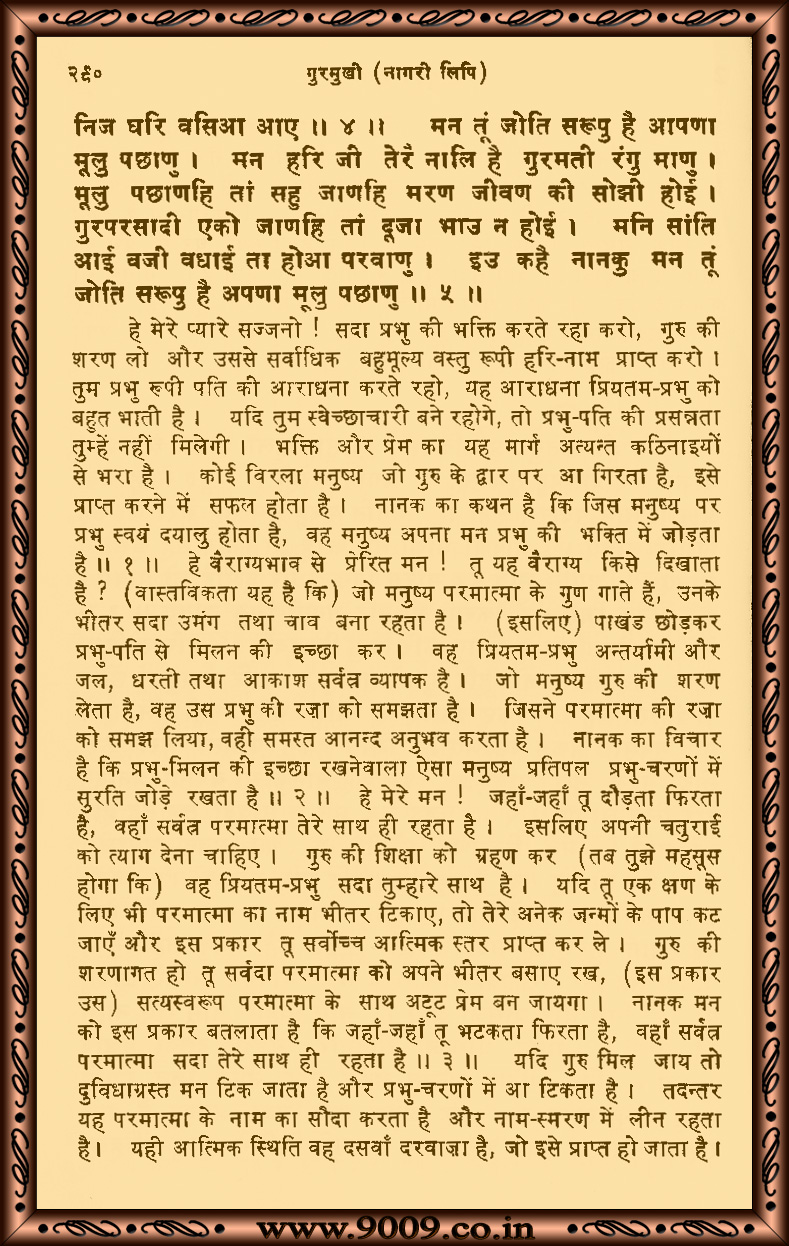 २९०
गुरमुखी (नागरी लिपि)
निज घरि वसिआ आए ॥ ४ ॥ मन तूं जोति सरूपु है आपणा
मूलु पछाणु । मन हरि जी तेरै नालि है गुरमती रंगु माणु ।
मूलु पछाणहि तां सहु जाणहि मरण जीवण की सोझी होई ।
गुरपरसादी एको जाणहि तां दूजा भाउ न होई । मनि सांति
आई वजी वधाई ता होआ परवाणु । इउ कहै नानकु मन तूं
जोति सरूपु है अपणा मूलु पछाणु ॥ ५ ॥
हे मेरे प्यारे सज्जनो ! सदा प्रभु की भक्ति करते रहा करो, गुरु की
शरण लो और उससे सर्वाधिक बहुमूल्य वस्तु रूपी हरि-नाम प्राप्त करो ।
तुम प्रभु रूपी पति की आराधना करते रहो, यह आराधना प्रियतम-प्रभु को
बहुत भाती है । यदि तुम स्वेच्छाचारी बने रहोगे, तो प्रभु-पति की प्रसन्नता
तुम्हें नहीं मिलेगी । भक्ति और प्रेम का यह मार्ग अत्यन्त कठिनाइयों
से भरा है । कोई विरला मनुष्य जो गुरु के द्वार पर आ गिरता है, इसे
प्राप्त करने में सफल होता है । नानक का कथन है कि जिस मनुष्य पर
प्रभु स्वयं दयालु होता है, वह मनुष्य अपना मन प्रभु की भक्ति में जोड़ता
है ॥ १ ॥ हे वैराग्यभाव से प्रेरित मन ! तू यह वैराग्य किसे दिखाता
है ? (वास्तविकता यह है कि) जो मनुष्य परमात्मा के गुण गाते हैं, उनके
भीतर सदा उमंग तथा चाव बना रहता है । (इसलिए) पाखंड छोड़कर
प्रभु-पति से मिलन की इच्छा कर । वह प्रियतम-प्रभु अन्तर्यामी और
जल, धरती तथा आकाश सर्वत्र व्यापक है । जो मनुष्य गुरु की शरण
लेता है, वह उस प्रभु की रज़ा को समझता है । जिसने परमात्मा की रज़ा
को समझ लिया, वही समस्त आनन्द अनुभव करता है । नानक का विचार
है कि प्रभु-मिलन की इच्छा रखनेवाला ऐसा मनुष्य प्रतिपल प्रभु-चरणों में
सुरति जोड़े रखता है ॥ २ ॥ हे मेरे मन ! जहाँ-जहाँ तू दौड़ता फिरता
है, वहाँ सर्वत्र परमात्मा तेरे साथ ही रहता है । इसलिए अपनी चतुराई
को त्याग देना चाहिए । गुरु की शिक्षा को ग्रहण कर (तब तुझे महसूस
होगा कि) वह प्रियतम-प्रभु सदा तुम्हारे साथ है । यदि तू एक क्षण के
लिए भी परमात्मा का नाम भीतर टिकाए, तो तेरे अनेक जन्मों के पाप कट
जाएँ और इस प्रकार तू सर्वोच्च आत्मिक स्तर प्राप्त कर ले । गुरु की
शरणागत हो तू सर्वदा परमात्मा को अपने भीतर बसाए रख, (इस प्रकार
उस) सत्यस्वरूप परमात्मा के साथ अटूट प्रेम बन जायगा । नानक मन
को इस प्रकार बतलाता है कि जहाँ-जहाँ तू भटकता फिरता है, वहाँ सर्वत्र
परमात्मा सदा तेरे साथ ही रहता है ॥ ३ ॥ यदि गुरु मिल जाय तो
दुविधाग्रस्त मन टिक जाता है और प्रभु-चरणों में आ टिकता है । तदन्तर
यह परमात्मा के नाम का सौदा करता है और नाम-स्मरण में लीन रहता
है । यही आत्मिक स्थिति वह दसवाँ दरवाज़ा है, जो इसे प्राप्त हो जाता है ।
www.9009.co.in